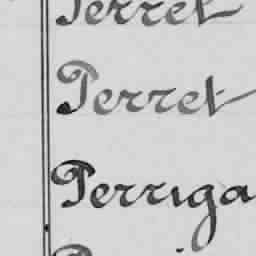 Perret
Perret
Perriga